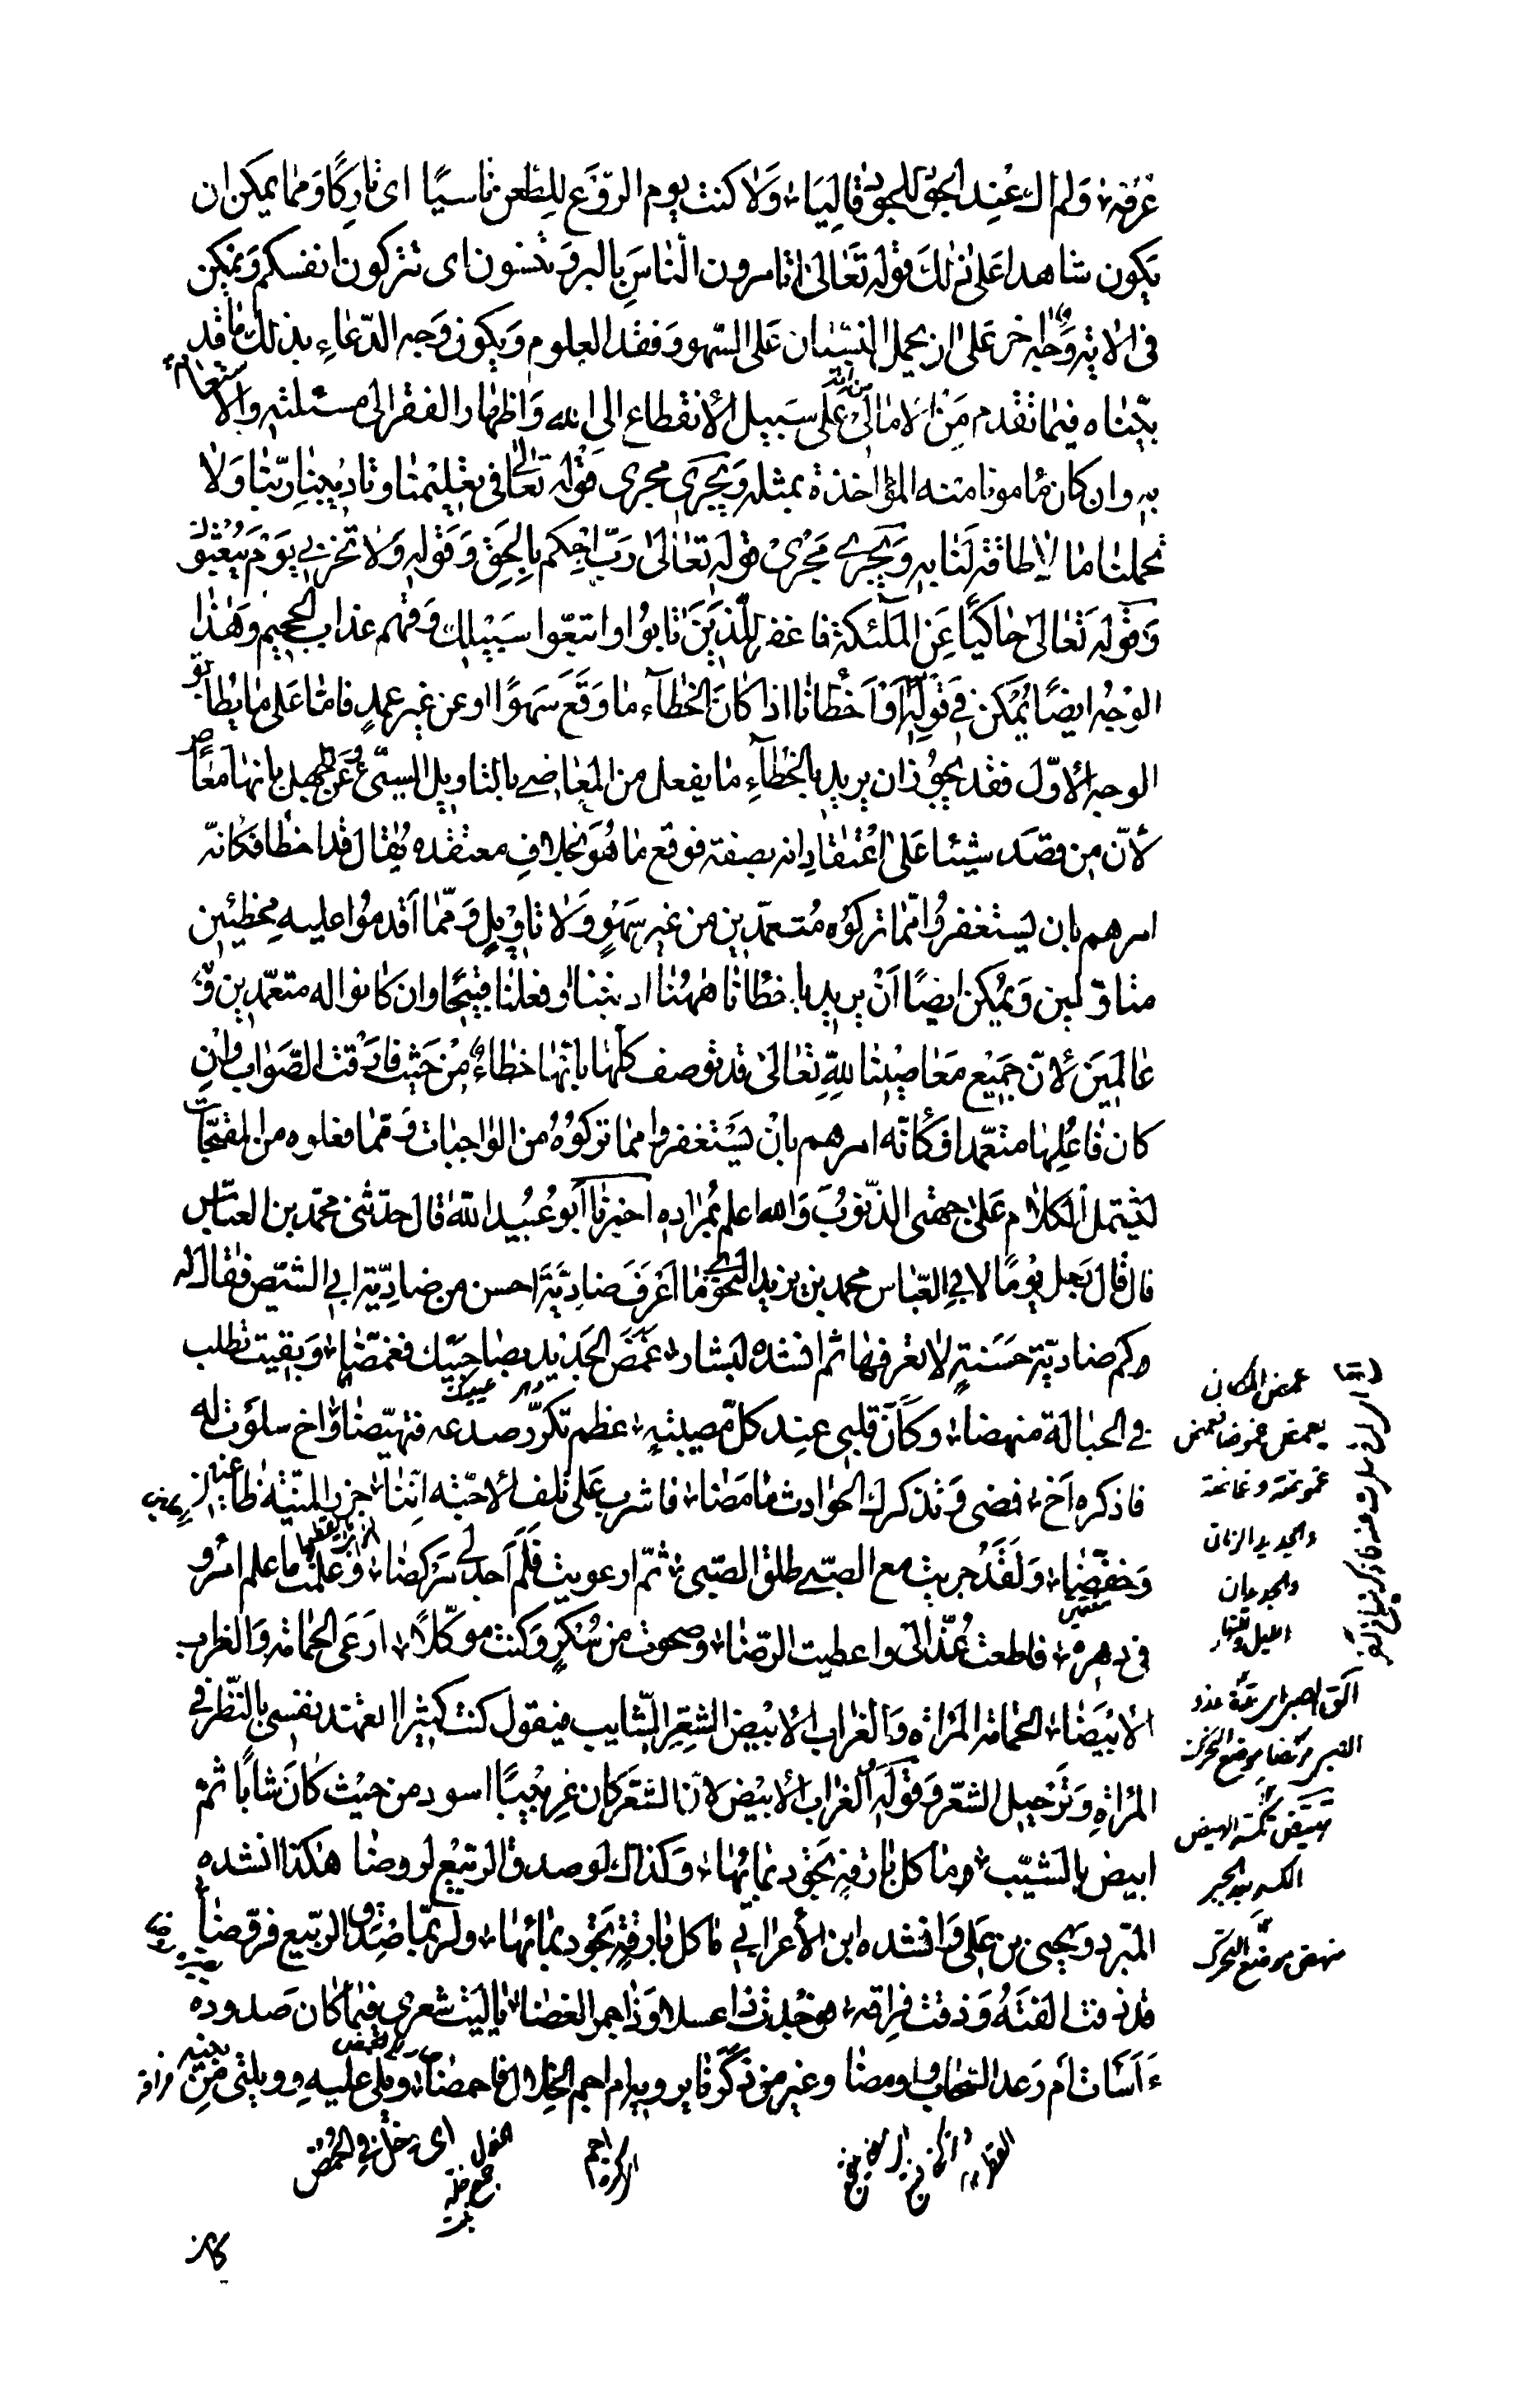 عرفة ولم اك عند الجود للجود قاليا ولا كنت يوم الروع للطعن ناسيا اى تاركا ومما يمكن ان
يكون شاهدا على ذلك قوله تعالى اتامرون الناس بالبر وتنسون اى تتركون انفسكم ويمكن
فى الاية وجه اخر على ان يحمل النسيان على السهو وفقد العلوم ويكون وجه الدعاء بذلك ما قد
بيناه فيما تقدم من الامالى على سبيل الانقطاع الى الله واظهار الفقر الى مسئلته والاستعانة
به وان كان مامونا منه المؤاخذة بمثله ويجرى مجرى قوله تعالى فى تعليمنا وتاديبنا ربنا ولا
تحملنا ما لا طاقة لنا به ويجرى مجرى قوله تعالى رب احكم بالحق وقوله ولا تخزنى يوم يبعثون
وقوله تعالى حاكيا عن الملئكة فاغفر للذين تابوا واتبعوا سبيلك وقهم عذاب الجحيم وهذا
الوجه ايضا يمكن فى قوله او اخطانا اذا كان الخطاء ما وقع سهوا او عن غير عمد فاما على ما يطابق
الوجه الاول فقد يجوز ان يريد بالخطاء ما يفعل من المعاصى بالتاويل السيئ وعن جهل بانها معاص
لان من قصد شيئا على اعتقاد انه بصفة فوقع ما هو بخلاف معتقده يقال قد اخطا فكانه
امرهم بان يستغفروا مما تركوه متعمدين من غير سهو ولا تاويل ومما اقدموا عليه مخطئين
متاولين ويمكن ايضا ان يريد باخطانا ههنا اذنبنا او فعلنا قبيحا وان كانوا له متعمدين و
عالمين لان جميع معاصينا لله تعالى قد توصف كلها بانها خطاء من حيث فارقت الصواب وان
كان فاعلها متعمدا فكانه امرهم بان يستغفروا مما تركوه من الواجبات ومما فعلوه من المقبحات
ليشتمل الكلام على جهتى الذنوب والله اعلم بمراده اخبرنا ابو عبيد الله قال حدثنى محمد بن العباس
قال قال رجل يوما لابى العباس محمد بن يزيد النحوى ما اعرف ضادية احسن من ضادية ابى الشيص فقال له
وكم ضادية حسنة لا تعرفها ثم انشده لبشار غمض الجديد بصاحبيك فغمضا وبقيت تطلب
فى الحبالة منهضا وكان قلبى عند كل مصيبة عظم تكرر صدعه فتهيضا واخ سلوت له
فاذكره اخ فمضى وتذكرك الحوادث ما مضا فاشرب على تلف الاحبة اننا جزر المنية ظاعنين
وخفضا ولقد جريت مع الصبى طلق الصبى ثم ارعويت فلم اجد لى مركضا وعلمت ما علم امرؤ
فى دهره فاطعت عذالى واعطيت الرضا وصحوت من سكر وكنت موكلا ارعى الحمامة والغراب
الابيضا الحمامة المراة والغراب الابيض الشعر الشايب فيقول كنت كثيرا اتعهد نفسى بالنظر فى
المراة وترجيل الشعر وقوله الغراب الابيض لان الشعر كان غربيبا اسود من حيث كان شابا ثم
ابيض بالشيب وما كل بارقة تجود بمائها وكذاك لو صدق الربيع لروضا هكذا انشده
المبرد ويحيى بن على وانشده ابن الاعرابى ما كل بارقة تجود بمائها ولربما صدق الربيع فروضا
قد ذقت الفته وذقت فراقه فوجدت ذا عسلا وذا جمر الغضا يا ليت شعرى فيما كان صدوده
ءاسات ام رعد السحاب واومضا وغير من ذكرنا يرويه ام اجم الخلال فاحمضا ويلى عليه وويلتى من بينه
غمض المكان
يغمض غموضا وغمض
غموضة وغماضة
والجديد الزمان
والجديدان
الليل والنهار
منهض موضع التحرك